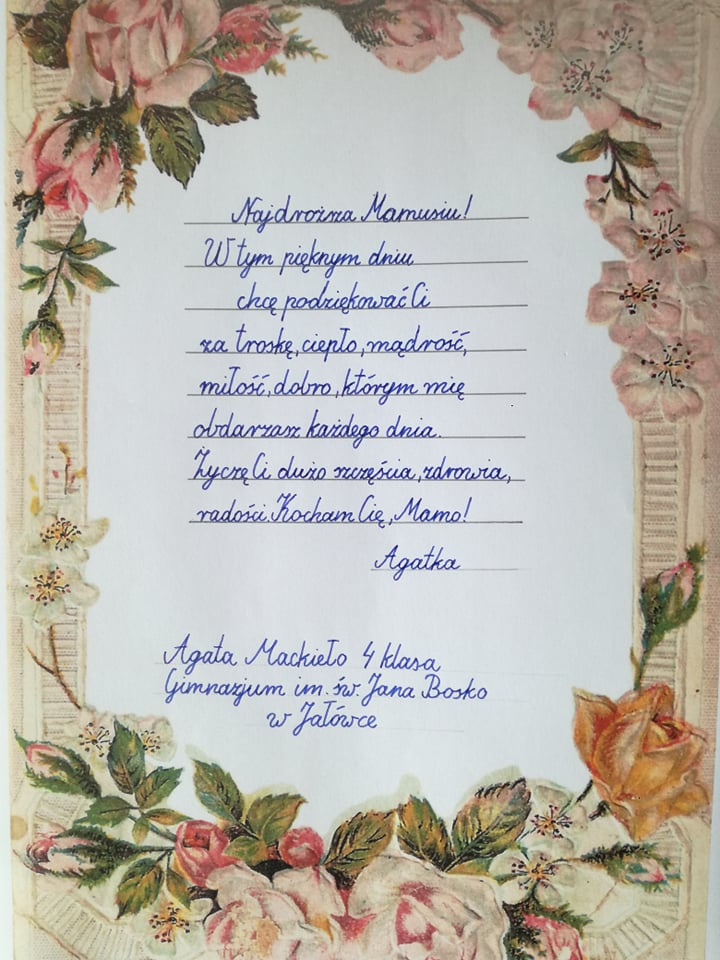 Najdroższa Mamusiu!
W tym pięknym dniu
chcę podziękować Ci
za troskę, ciepło, mądrość,
miłość, dobro, którym mię
obdarzasz każdego dnia.
Życzę Ci dużo szczęścia, zdrowia,
radości. Kocham Cię, Mamo!
Agatka
Agata Mackieło 4 klasa
Gimnazjum im. św. Jana Bosko
w Jałówce